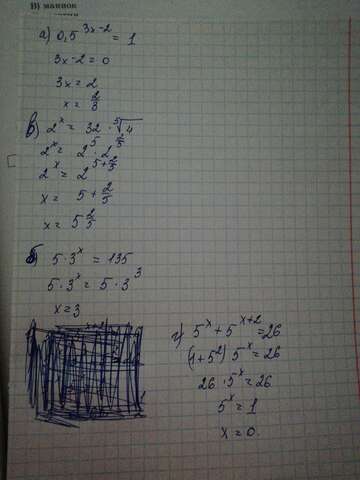 В) манной
а) 0,5^{3x-2} = 1
3x-2=0
3x=2
x = 2/3
в) 2^x = 32 · ⁵√4
2^x = 2^5 · 2^{2/5}
2^x = 2^{5+2/5}
x = 5 + 2/5
x = 5 2/5
б) 5·3^x = 135
5·3^x = 5·3^3
x=3
г) 5^x + 5^{x+2} = 26
(1+5^2) 5^x = 26
26·5^x = 26
5^x = 1
x = 0.